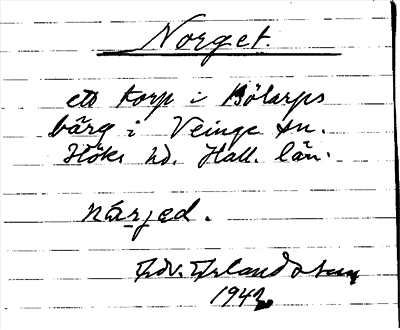 Norget.
ett torp i Bölarps
bärg i Veinge sn.
Höks hd. Hall. län.
nárjed.
Edv. Erlandsson
1942